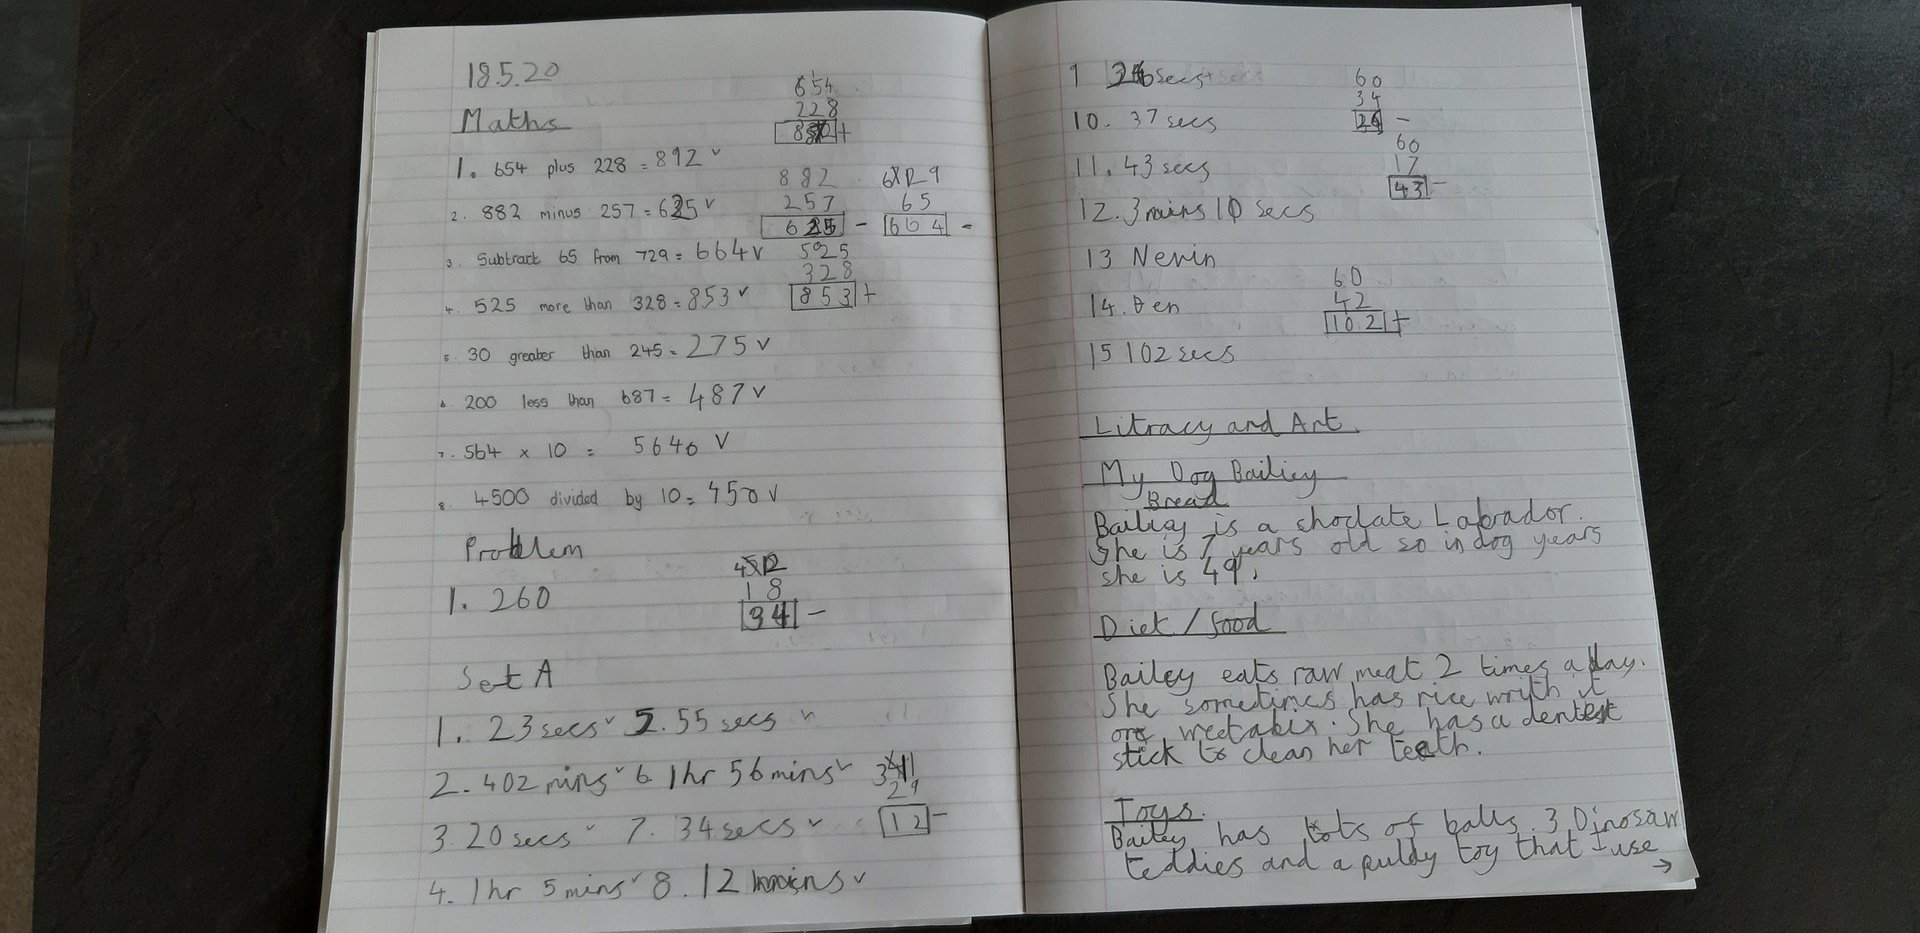 18.5.20
Maths
654
228
+
1. 654 plus 228 = 892 v
882
257
625 -
6 12 9
65
664 -
2. 882 minus 257 = 625 v
3. Subtract 65 from 729 = 664 v
525
328
853 +
4. 525 more than 328 = 853 v
5. 30 greater than 245 = 275 v
6. 200 less than 687 = 487 v
7. 564 x 10 = 5640 v
8. 4500 divided by 10 = 450 v
Problem
1. 260
18
34 -
Set A
1. 23 secs v 5. 55 secs v
2. 402 mins v 6. 1hr 56 mins v
29
12 -
3. 20 secs v 7. 34 secs v
4. 1hr 5 mins v 8. 12 mins v
9 secs
60
34
26 -
10. 37 secs
60
17
43 -
11. 43 secs
12. 3 mins 10 secs
13 Nevin
60
42
102 +
14. Ben
15 102 secs
Litracy and Art.
My Dog Bailiey
Bread
Bailiey is a shoclate Labrador.
She is 7 years old so in dog years
she is 49.
Diet / food
Bailey eats raw meat 2 times a day.
She sometimes has rice wryth it
ore weetabix. She has a dentest
stick to clean her teeth.
Toys.
Bailey has lots of balls. 3 Dinosaw
teddies and a puldy toy that I use
→